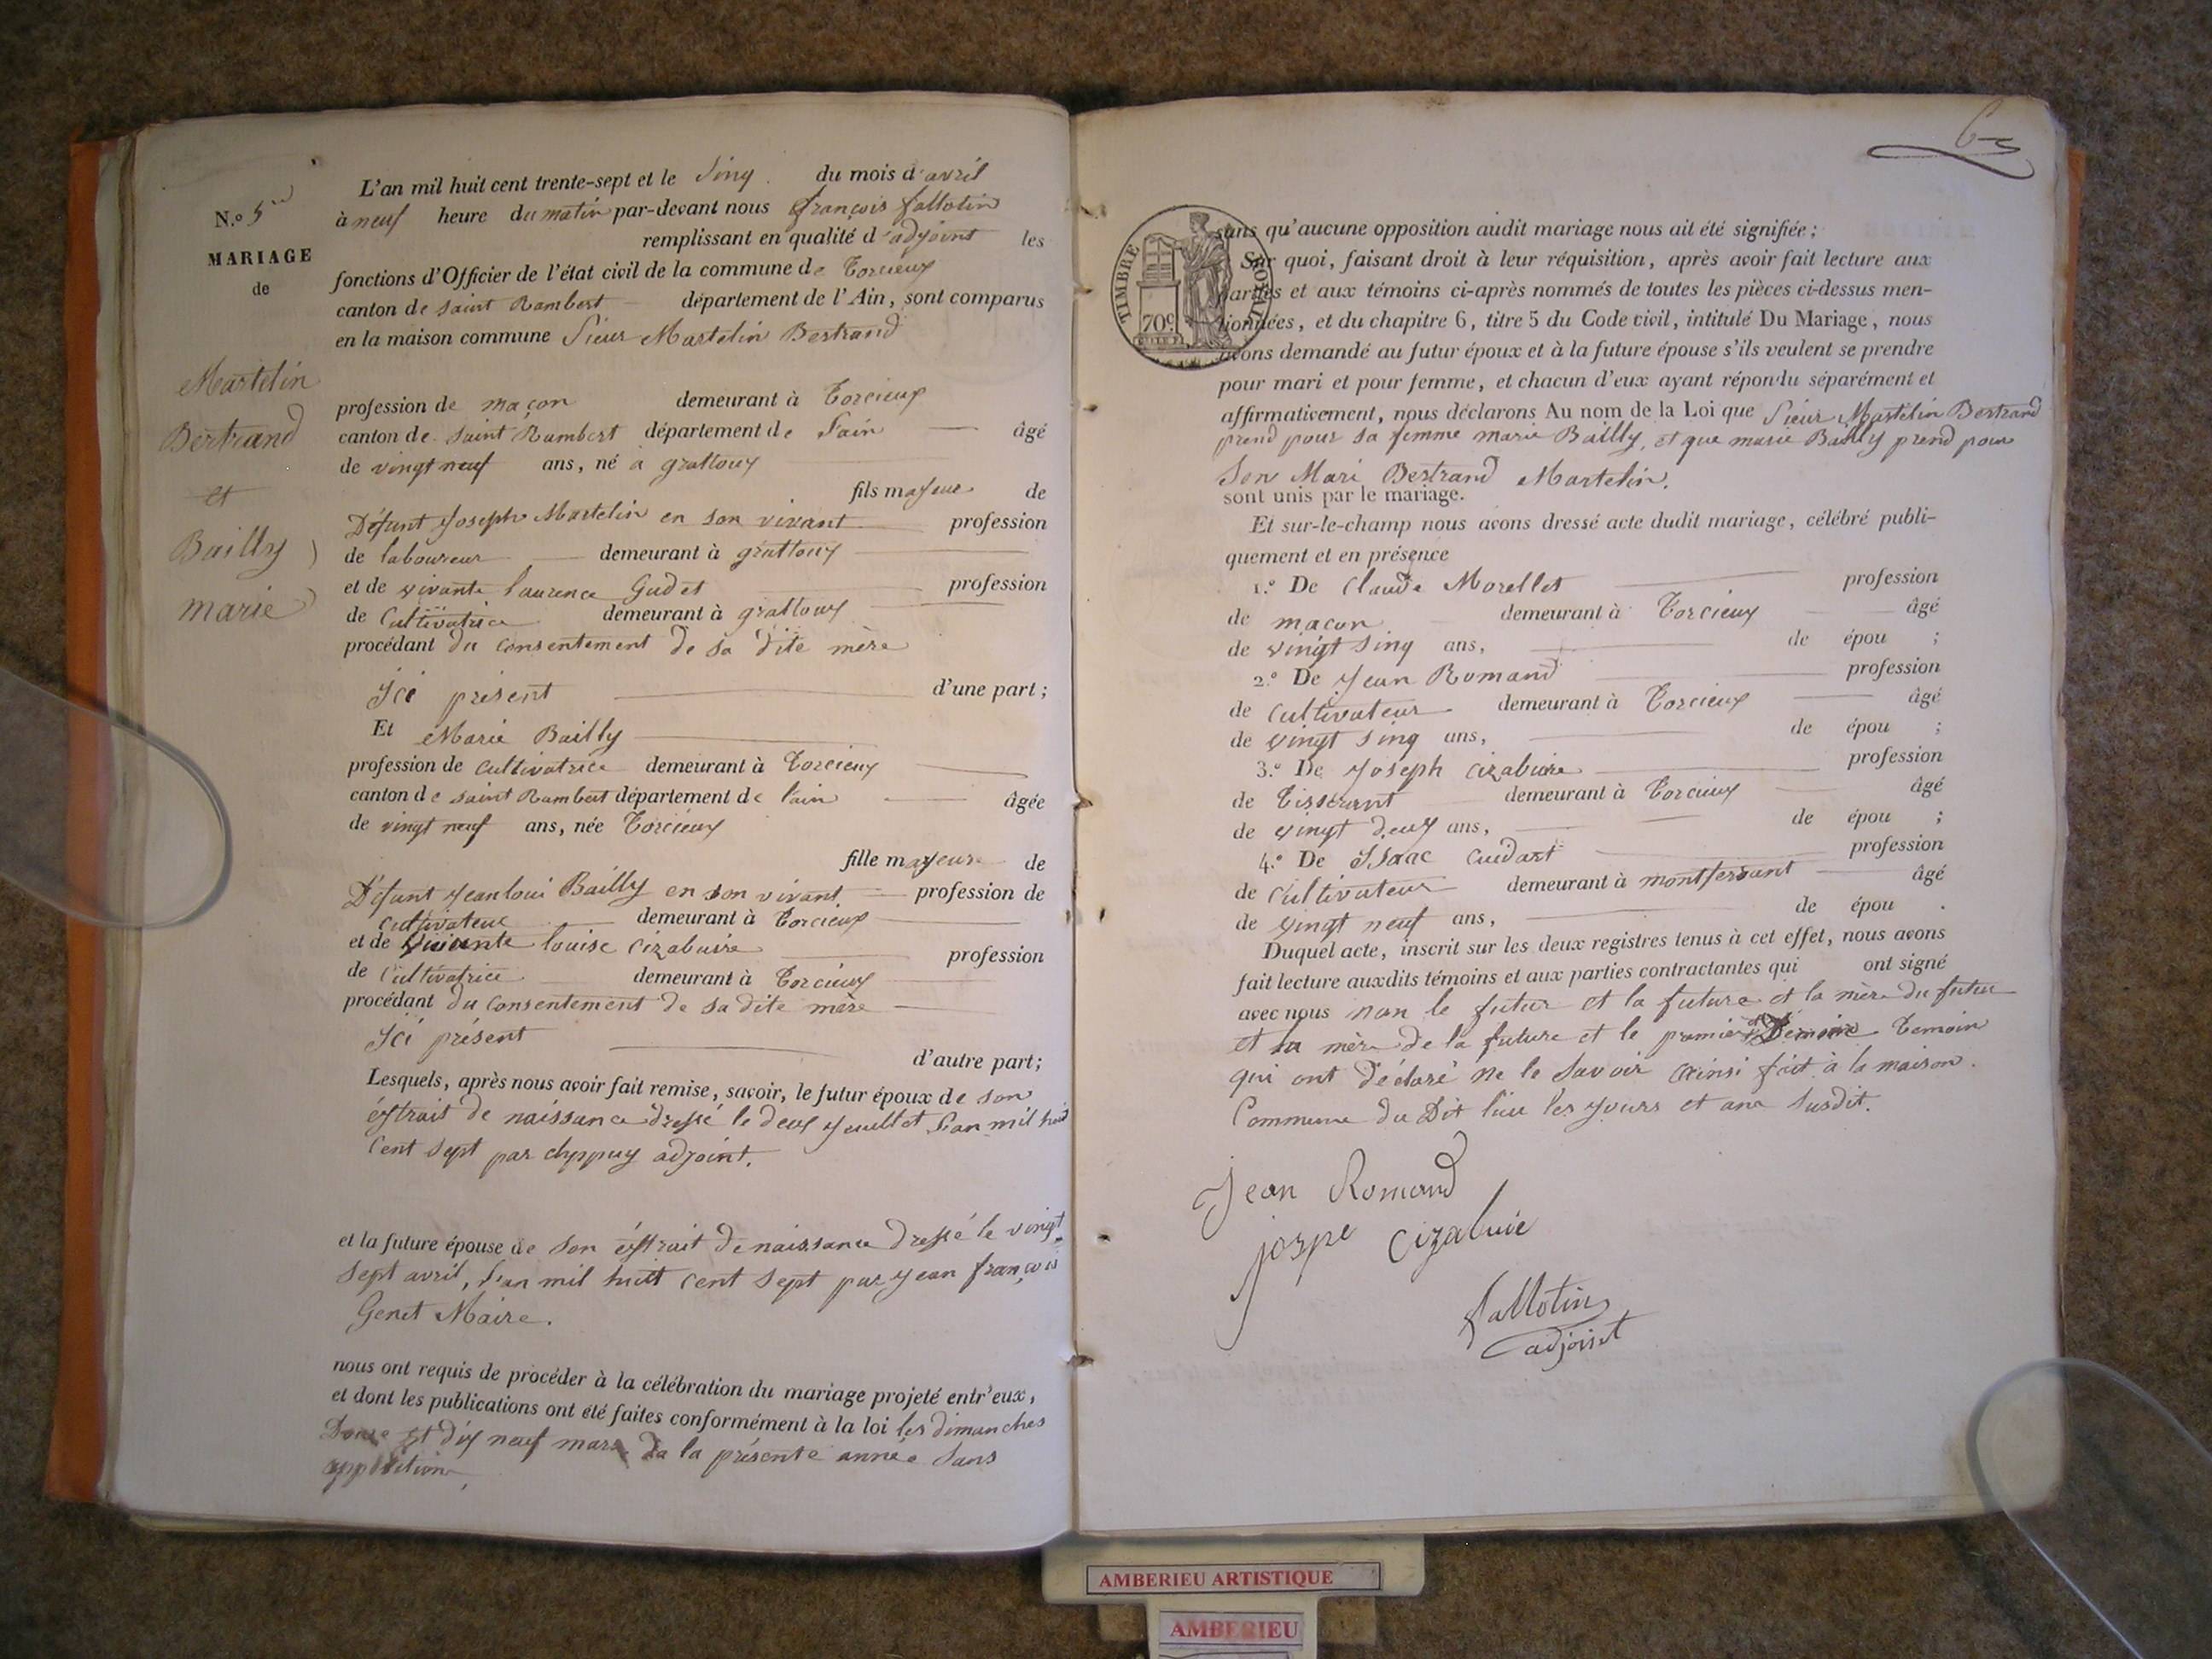 N.o 5
MARIAGE
de
Martelin
Bertrand
et
Bailly
marie
L'an mil huit cent trente-sept et le sinq du mois d'avril
à neuf heure du matin par-devant nous françois fallotin
remplissant en qualité d'adjoint les
fonctions d'Officier de l'état civil de la commune de Torcieux
canton de saint Rambert département de l'Ain, sont comparus
en la maison commune Sieur Martelin Bertrand
profession de maçon demeurant à Torcieux
canton de saint Rambert département de l'ain âgé
de vingt neuf ans, né à grattoux
fils majeur de
Défunt Joseph Martelin en son vivant profession
de laboureur demeurant à grattoux
et de vivante laurence Gudet profession
de Cultivatrice demeurant à grattoux
procédant du consentement de sa dite mère
Ici présent d'une part;
Et Marie Bailly
profession de cultivatrice demeurant à Torcieux
canton de saint Rambert département de l'ain âgée
de vingt neuf ans, née Torcieux
fille majeure de
Défunt Jean loui Bailly en son vivant profession de
cultivateur demeurant à Torcieux
et de vivante louise cizabuire profession
de Cultivatrice demeurant à Torcieux
procédant du consentement de sa dite mère
Ici présent
d'autre part;
Lesquels, après nous avoir fait remise, savoir, le futur époux de son
éxtrait de naissance dressé le deux Juillet l'an mil huit
Cent sept par adjoint.
et la future épouse de son éxtrait de naissance dressé le vingt
sept avril, l'an mil huit cent sept par Jean françois
Genet Maire.
nous ont requis de procéder à la célébration du mariage projeté entr'eux,
et dont les publications ont été faites conformément à la loi les dimanches
Douze et dix neuf mars de la présente année sans
opposition,
6
TIMBRE ROYAL
70c
sans qu'aucune opposition audit mariage nous ait été signifiée;
Sur quoi, faisant droit à leur réquisition, après avoir fait lecture aux
parties et aux témoins ci-après nommés de toutes les pièces ci-dessus men-
tionnées, et du chapitre 6, titre 5 du Code civil, intitulé Du Mariage, nous
avons demandé au futur époux et à la future épouse s'ils veulent se prendre
pour mari et pour femme, et chacun d'eux ayant répondu séparément et
affirmativement, nous déclarons Au nom de la Loi que Sieur Martelin Bertrand
prend pour sa femme marie Bailly, et que marie Bailly prend pour
Son Mari Bertrand Martelin.
sont unis par le mariage.
Et sur-le-champ nous avons dressé acte dudit mariage, célébré publi-
quement et en présence
1.o De Claude Morellet profession
de macon demeurant à Torcieux âgé
de vingt sinq ans, de épou ;
2.o De Jean Romand profession
de cultivateur demeurant à Torcieux âgé
de vingt sinq ans, de épou ;
3.o De Joseph cizabuire profession
de Tisserant demeurant à Torcieux âgé
de vingt deux ans, de épou ;
4.o De Isaac Cuidart profession
de Cultivateur demeurant à montferrant âgé
de vingt neuf ans, de épou .
Duquel acte, inscrit sur les deux registres tenus à cet effet, nous avons
fait lecture auxdits témoins et aux parties contractantes qui ont signé
avec nous non le futur et la future et la mère du futur
et la mère de la future et le premier Temoin
qui ont déclaré ne le savoir ainsi fait à la maison
Commune du Dit lieu les jours et ans susdit.
Jean Romand
jospe cizabuie
fallotin
adjoint
AMBERIEU ARTISTIQUE
AMBERIEU